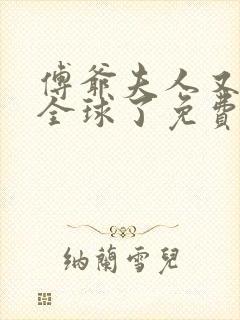 傅爺夫人又
全球了免費
納蘭雪兒